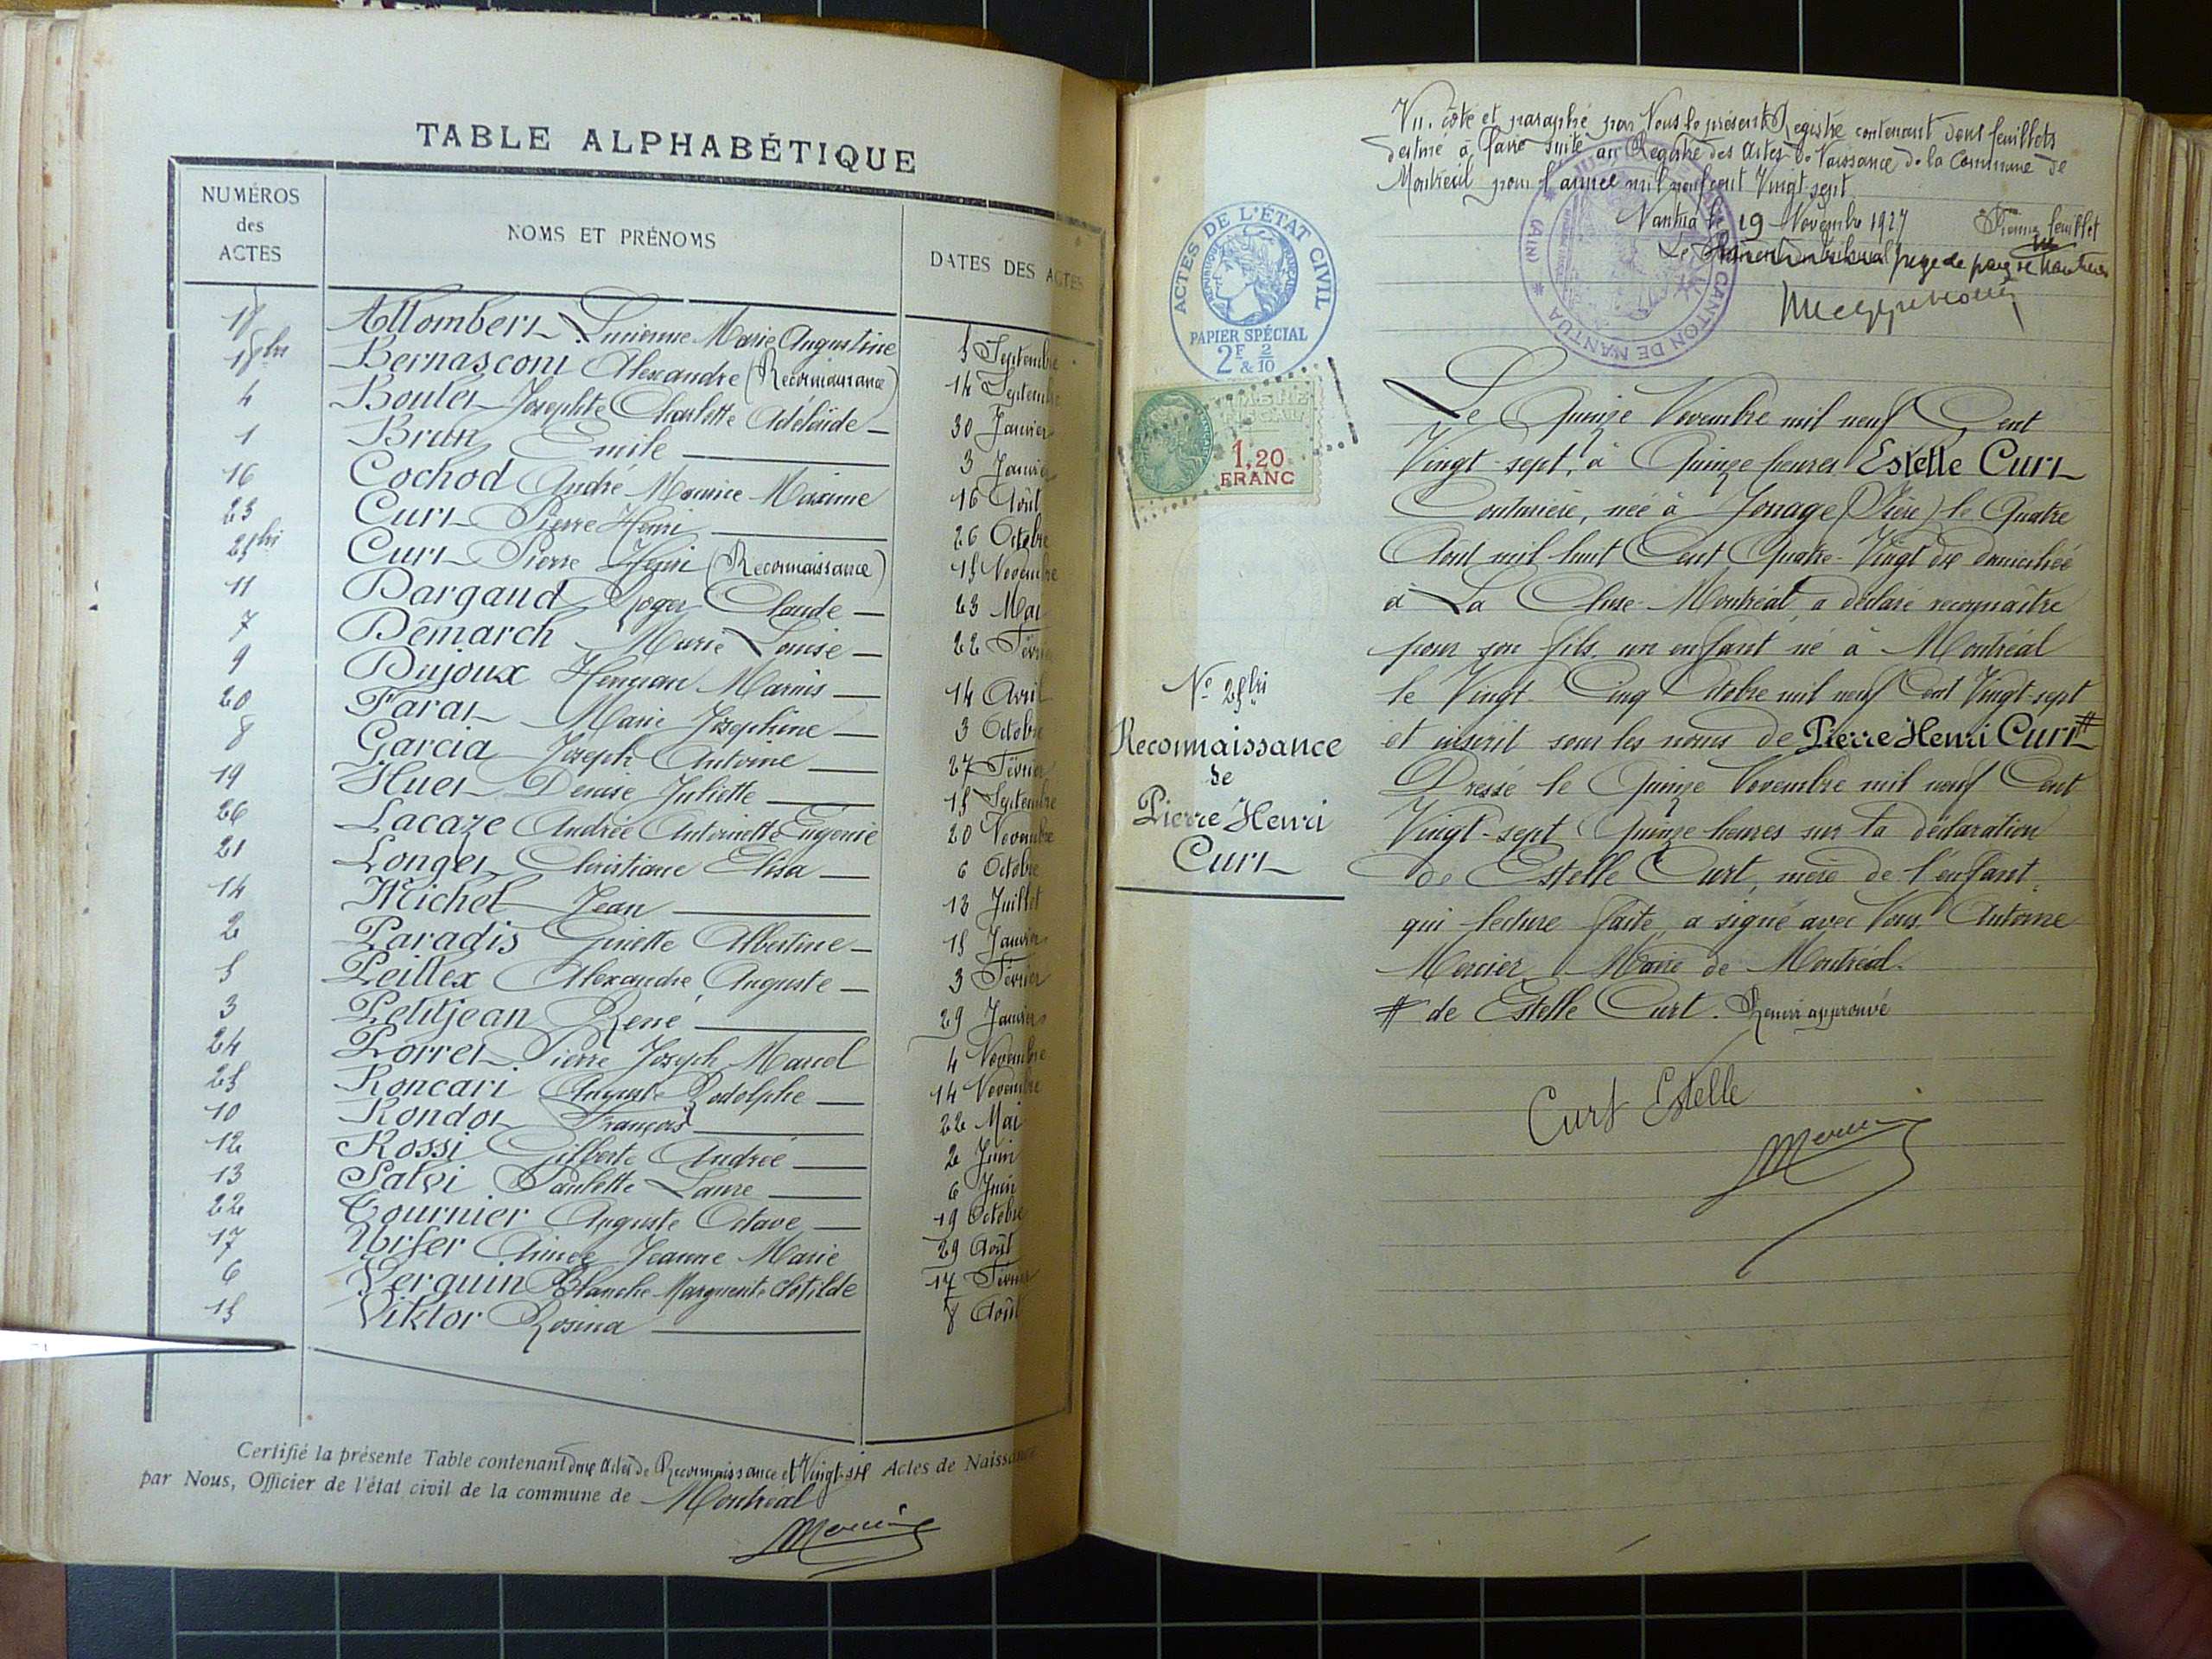 TABLE ALPHABÉTIQUE
NUMÉROS des ACTES
NOMS ET PRÉNOMS
DATES DES ACTES
18 Allombert Lucienne Marie Augustine 5 Septembre
18 bis Bernasconi Alexandre (Reconnaissance) 14 Septembre
4 Boutet Josephte Charlotte Adélaïde 30 Janvier
1 Brun Emile 3 Janvier
16 Cochod André Maurice Maxime 16 Août
23 Curt Pierre Henri 26 Octobre
25 bis Curt Pierre Henri (Reconnaissance) 15 Novembre
11 Dargaud Roger Claude 23 Mai
7 Démarch Marie Louise 22 Février
9 Dujoux Herman Marius 14 Avril
20 Farat Marie Joséphine 3 Octobre
8 Garcia Joseph Antoine 27 Février
19 Huet Denise Juliette 15 Septembre
26 Lacaze Andrée Antoinette Eugénie 20 Novembre
21 Longet Christiane Elisa 6 Octobre
14 Michel Jean 13 Juillet
2 Paradis Ginette Albertine 15 Janvier
5 Peillex Alexandre Auguste 3 Février
3 Petitjean René 29 Janvier
24 Porret Pierre Joseph Marcel 4 Novembre
25 Roncari Auguste Rodolphe 14 Novembre
10 Rondot François 22 Mai
12 Rossi Gilberte Andrée 2 Juin
13 Salvi Paulette Laure 6 Juin
22 Tournier Auguste Octave 19 Octobre
17 Urfer Aimée Jeanne Marie 29 Août
6 Verguin Blanche Marguerite Clotilde 17 Février
15 Viktor Rosina 8 Août
Certifié la présente Table contenant deux actes de Reconnaissance et Vingt-six Actes de Naissance
par Nous, Officier de l'état civil de la commune de Montréal
Mercier
Vu, côté et paraphé par Nous le présent Registre contenant deux feuillets
destiné à faire suite au Registre des Actes de Naissance de la Commune de
Montréal pour l'année mil neuf cent Vingt-sept
Nantua le 19 Novembre 1927
Premier feuillet
Le Président du tribunal juge de paix de Nantua
CANTON DE NANTUA (AIN)
ACTES DE L'ÉTAT CIVIL
RÉPUBLIQUE FRANÇAISE
PAPIER SPÉCIAL
2F & 2/10
TIMBRE
FISCAL
1,20
FRANC
Le Quinze Novembre mil neuf Cent
Vingt-sept, à Quinze heures Estelle Curt
Couturière, née à Jonage (Isère) le Quatre
Août mil huit Cent Quatre-Vingt dix domiciliée
à La Cluse-Montréal, a déclaré reconnaître
pour son fils, un enfant né à Montréal
le Vingt-Cinq Octobre mil neuf Cent Vingt-sept
et inscrit sous les noms de Pierre Henri Curt #
Dressé le Quinze Novembre mil neuf Cent
Vingt-sept Quinze heures sur la déclaration
de Estelle Curt, mère de l'enfant,
qui lecture faite, a signé avec Nous Antoine
Mercier Maire de Montréal.
# de Estelle Curt. Renvoi approuvé
Curt Estelle
Mercier
N° 25 bis
Reconnaissance
de
Pierre Henri
Curt